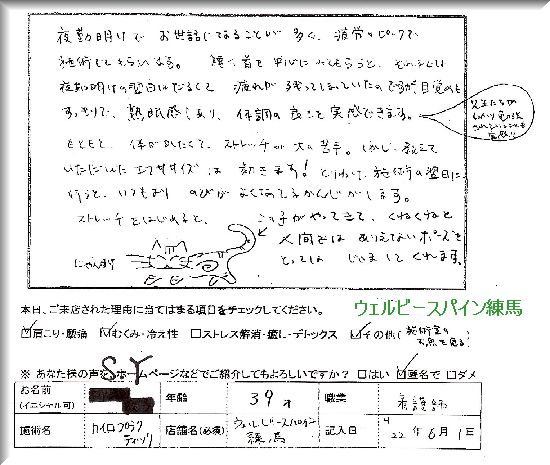 夜勤明けで お世話になることが多く、疲労のピークで
施術してもらいます。 腰、首を中心にみてもらうと、それまでは
夜勤明けの翌日はだるくて 疲れが残ってしまっていたのですが目覚めも
すっきりで、熟眠感もあり、体調の良さを実感できます。
もともと、体がかたくて、ストレッチが大の苦手。しかし、教えて
いただいたエクササイズは効きます！とりわけ、施術の翌日に
行うと、いつもより のびがよくなってるかんじがします。
ストレッチをはじめると、 この子がやってきて、くねくねと
人間ではありえないポーズを
とっては じゃましてくれます。
にゃんボウ
本日、ご来店された理由に当てはまる項目をチェックしてください。
ウェルビースパイン練馬
☑肩こり・腰痛 ☑むくみ・冷え性 □ストレス解消・癒し・デトックス ☑その他(
※ あなた様の声をホームページなどでご紹介してもよろしいですか？ □はい ☑匿名で □ダメ
SY
お名前
(イニシャル可)
年齢 39才 職業 看護師
施術名 カイロプラクティック 店舗名(必須) ウェルビースパイン練馬 記入日 H22年6月1日